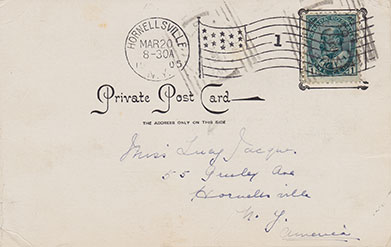 HORNELLSVILLE
MAR 20
8-30A
05
N.Y.
1
Private Post Card
THE ADDRESS ONLY ON THIS SIDE
Miss Lucy Jacques
55 Greeley Ave
Hornellsville
N. Y.
America